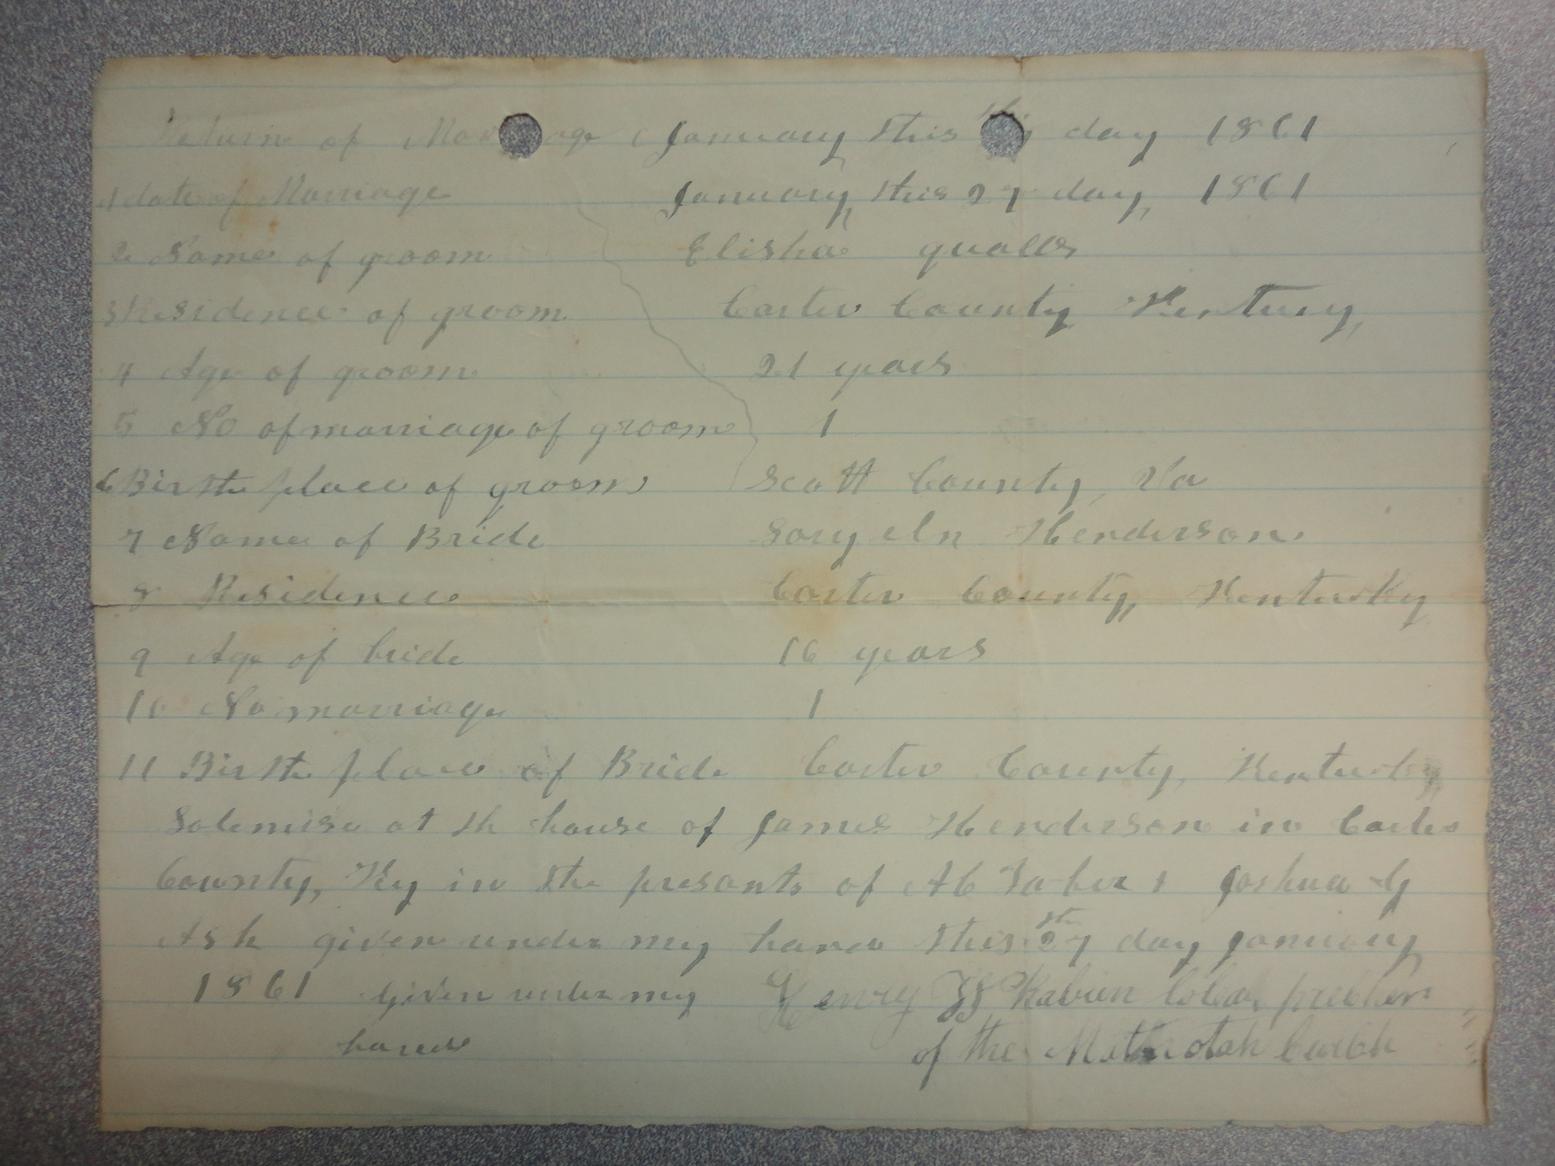 Return of Marriage January this day 1861
1 date of Marriage January, this 27 day, 1861
2 Name of groom Elisha qualls
3 Residence of groom Carter County Kentucy,
4 Age of groom 21 years
5 No of marriage of groom 1
6 Birth place of groom Scott County, Va
7 Name of Bride Henderson
8 Residence Carter County, Kentucky
9 Age of bride 16 years
10 No marriage 1
11 Birth place of Bride Carter County, Kentucky
Solemise at th house of James Henderson in Carter
County, Ky in the presants of Ab & Joshua G
Ash given under my hand this 27th day January
1861 Given under my Henry preacher
hand of the